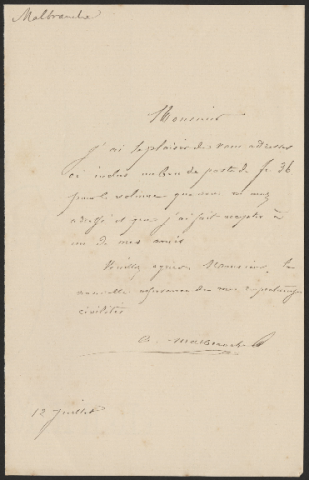 Malbranche
Monsieur
J'ai le plaisir de vous adresser
ci inclus un bon de poste de fr. 36
pour le volume que vous m'avez
adressé et que j'ai fait
un de mes amis
Veuillez agréer Monsieur, la
nouvelle assurance de mes
civilités
Malbranche
12 Juillet